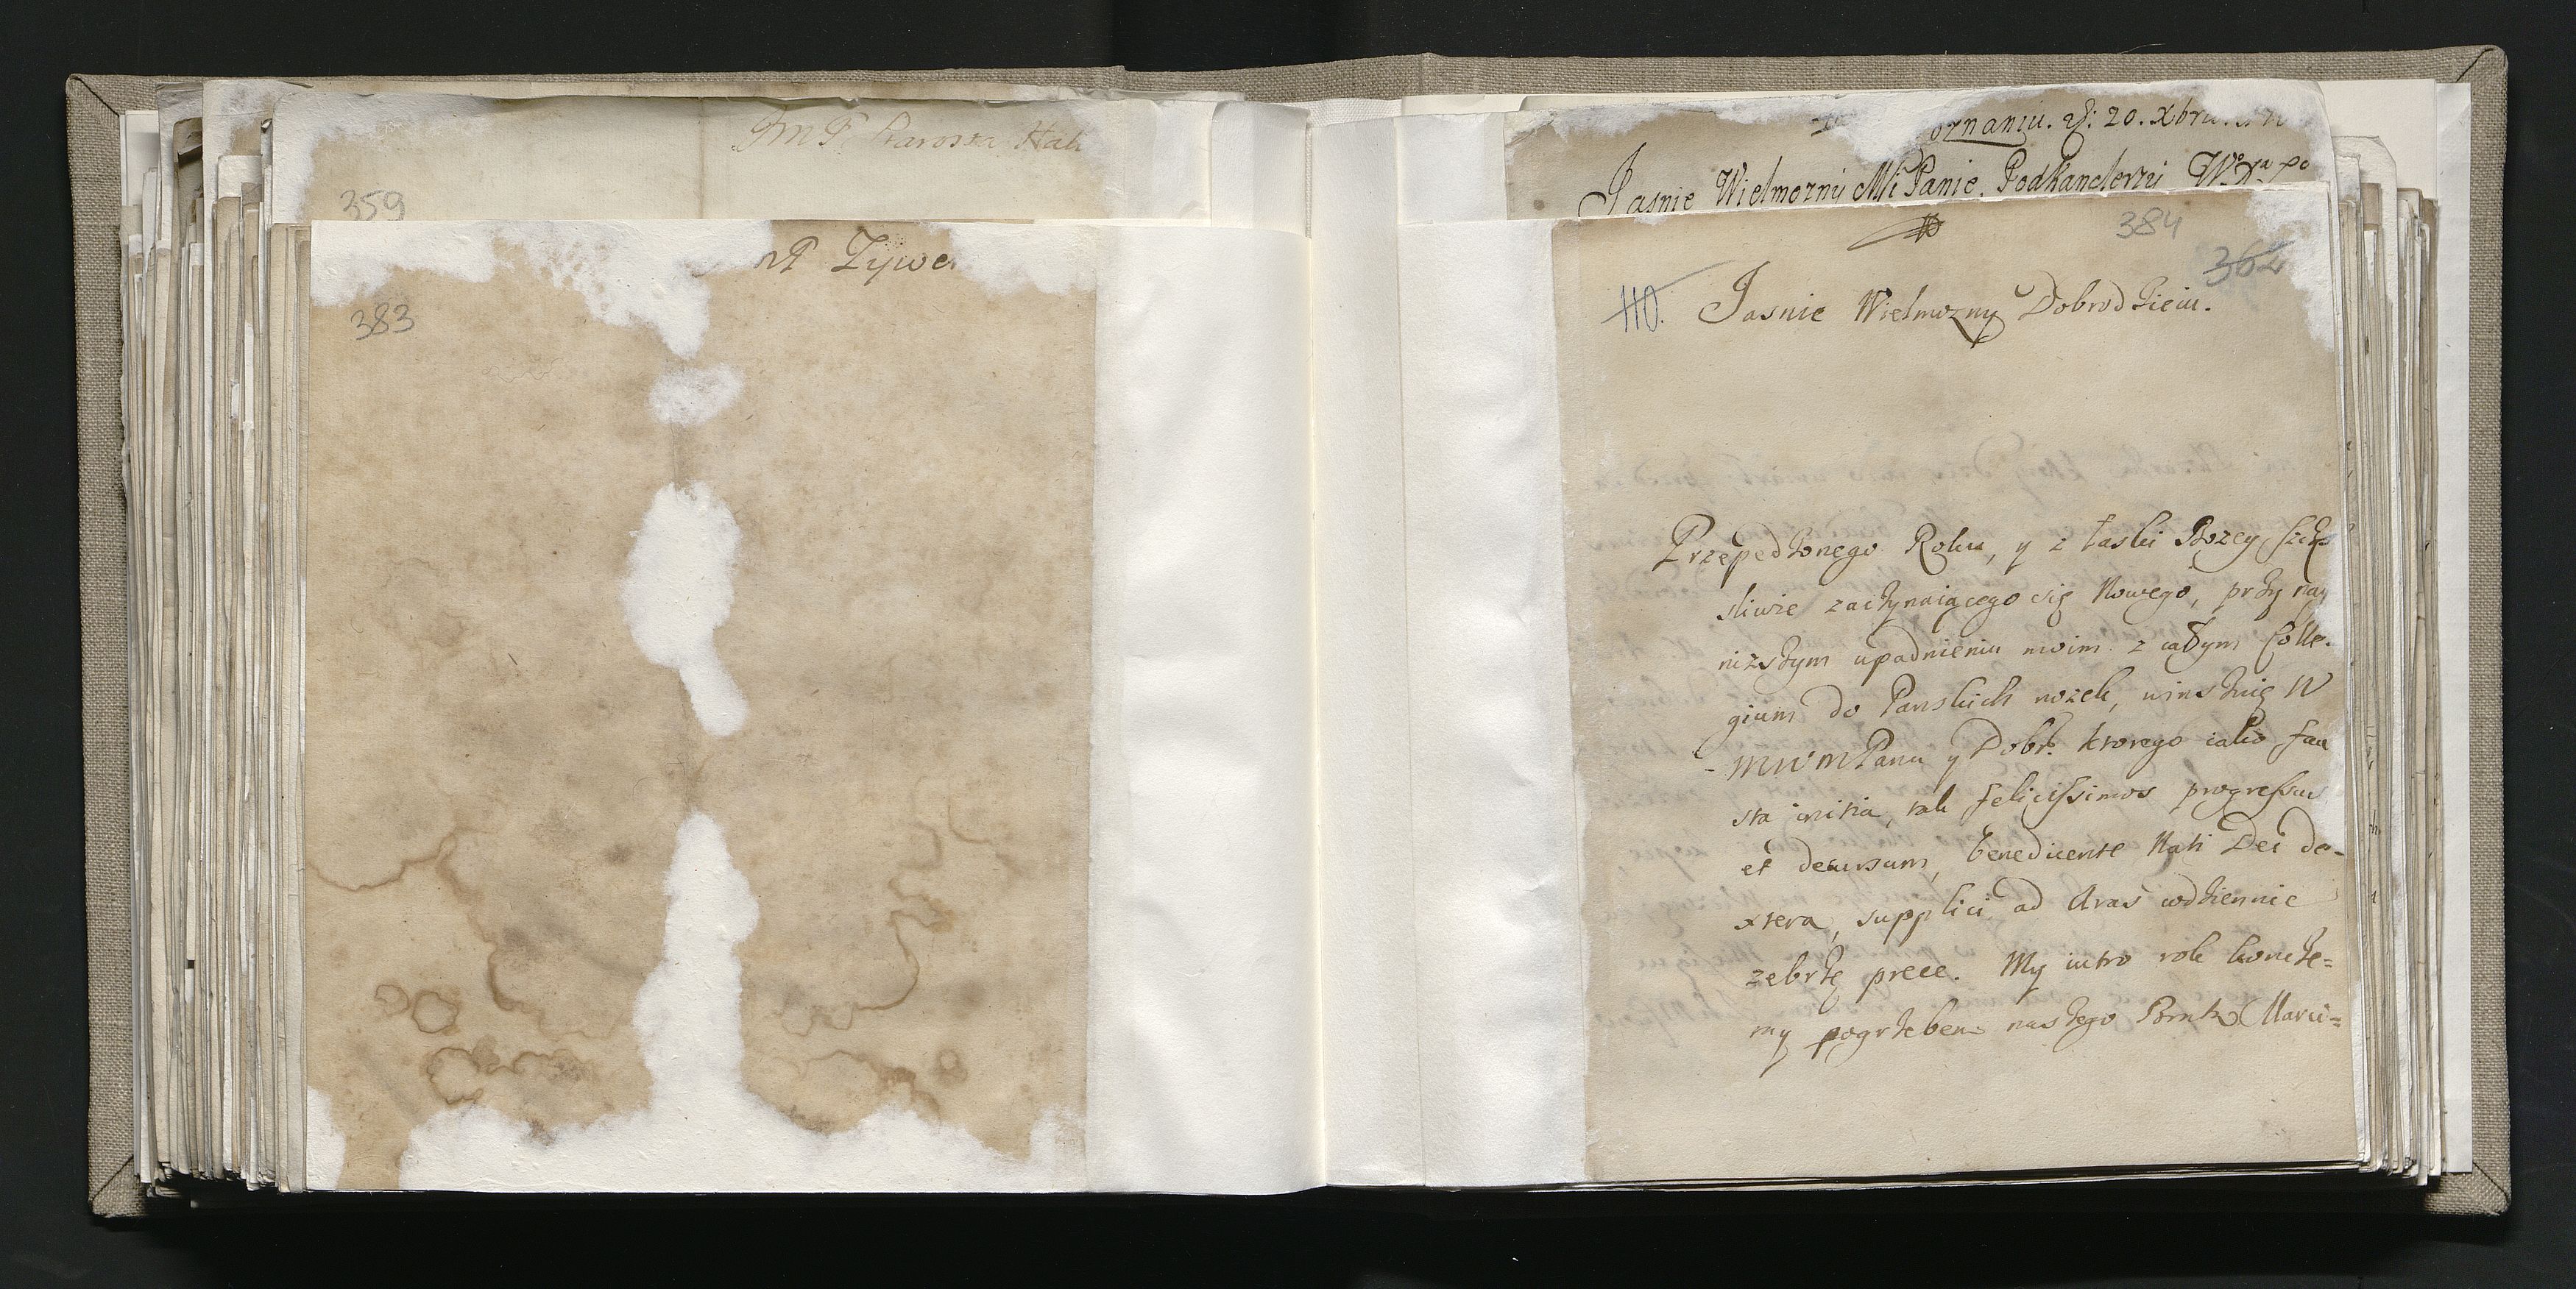 JMP Starosta Hali
359
nA Zywe
383
oznaniu. d: 20. Xbru.
Jasnie Wielmozny Mći Panie. Podkanclerzy
384
362
110. Jasnie Wielmozny Dobrodzieiu.
Przepędzonego Roku, y z łaski Bozey szczę
sliwie zaczynaiącego się Nowego, przy nay
nizszym upadnieniu moim z całym Colle-
gium do Panskich nozek, winszuię W
MWMPanu y Dobr. ktorego iako fau
sta initia, tak felicissimos progressus
et decursum, benedicente Nati Dei de-
xtera, supplici ad Aras codziennie
zebrzę prece. My iutro rok koncze=
my pogrzebem naszego Marci=